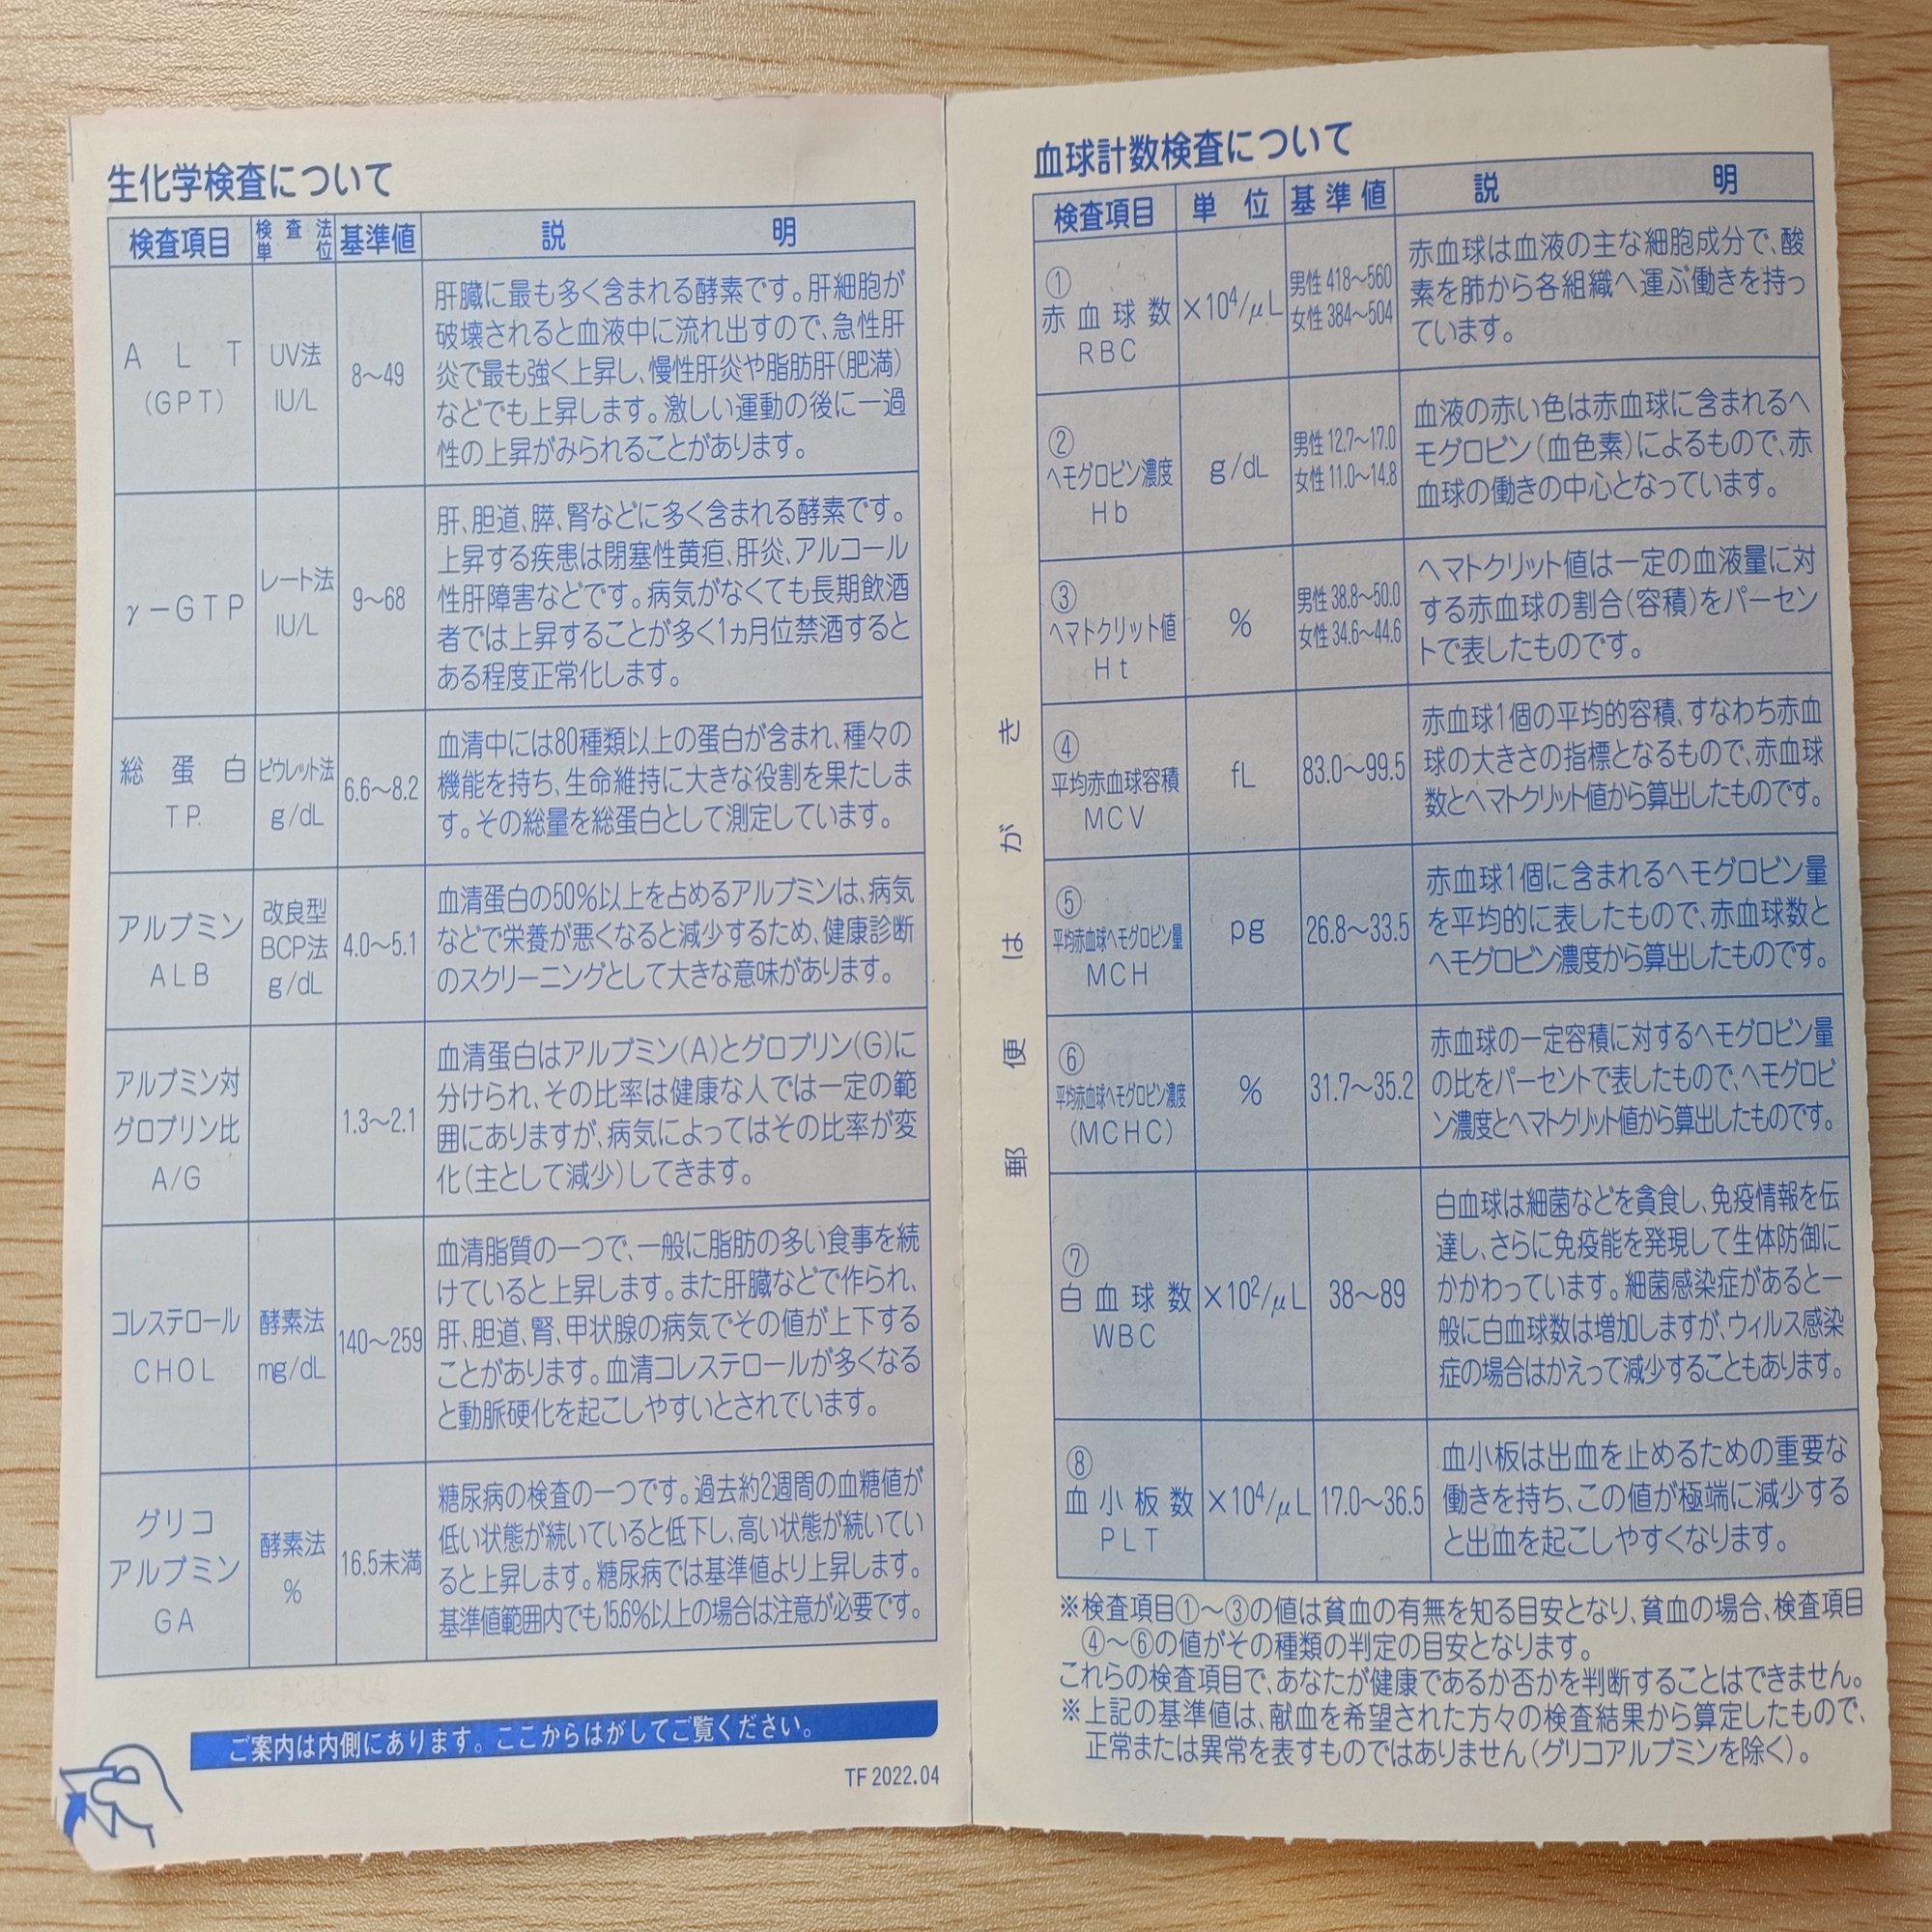 生化学検査について
検査項目
検査法
単位
基準値
説明
ALT
(GPT)
UV法
IU/L
8〜49
肝臓に最も多く含まれる酵素です。肝細胞が
破壊されると血液中に流れ出すので、急性肝
炎で最も強く上昇し、慢性肝炎や脂肪肝(肥満)
などでも上昇します。激しい運動の後に一過
性の上昇がみられることがあります。
γ-GTP
レート法
IU/L
9〜68
肝、胆道、膵、腎などに多く含まれる酵素です。
上昇する疾患は閉塞性黄疸、肝炎、アルコール
性肝障害などです。病気がなくても長期飲酒
者では上昇することが多く1ヵ月位禁酒すると
ある程度正常化します。
総蛋白
TP.
ビウレット法
g/dL
6.6〜8.2
血清中には80種類以上の蛋白が含まれ、種々の
機能を持ち、生命維持に大きな役割を果たしま
す。その総量を総蛋白として測定しています。
アルブミン
ALB
改良型
BCP法
g/dL
4.0〜5.1
血清蛋白の50%以上を占めるアルブミンは、病気
などで栄養が悪くなると減少するため、健康診断
のスクリーニングとして大きな意味があります。
アルブミン対
グロブリン比
A/G
1.3〜2.1
血清蛋白はアルブミン(A)とグロブリン(G)に
分けられ、その比率は健康な人では一定の範
囲にありますが、病気によってはその比率が変
化(主として減少)してきます。
コレステロール
CHOL
酵素法
mg/dL
140〜259
血清脂質の一つで、一般に脂肪の多い食事を続
けていると上昇します。また肝臓などで作られ、
肝、胆道、腎、甲状腺の病気でその値が上下する
ことがあります。血清コレステロールが多くなる
と動脈硬化を起こしやすいとされています。
グリコ
アルブミン
GA
酵素法
%
16.5未満
糖尿病の検査の一つです。過去約2週間の血糖値が
低い状態が続いていると低下し、高い状態が続いてい
ると上昇します。糖尿病では基準値より上昇します。
基準値範囲内でも15.6%以上の場合は注意が必要です。
ご案内は内側にあります。ここからはがしてご覧ください。
TF 2022.04
郵便はがき
血球計数検査について
検査項目
単位
基準値
説明
①
赤血球数
RBC
×10⁴/μL
男性 418〜560
女性 384〜504
赤血球は血液の主な細胞成分で、酸
素を肺から各組織へ運ぶ働きを持っ
ています。
②
ヘモグロビン濃度
Hb
g/dL
男性 12.7〜17.0
女性 11.0〜14.8
血液の赤い色は赤血球に含まれるヘ
モグロビン(血色素)によるもので、赤
血球の働きの中心となっています。
③
ヘマトクリット値
Ht
%
男性 38.8〜50.0
女性 34.6〜44.6
ヘマトクリット値は一定の血液量に対
する赤血球の割合(容積)をパーセン
トで表したものです。
④
平均赤血球容積
MCV
fL
83.0〜99.5
赤血球1個の平均的容積、すなわち赤血
球の大きさの指標となるもので、赤血球
数とヘマトクリット値から算出したものです。
⑤
平均赤血球ヘモグロビン量
MCH
pg
26.8〜33.5
赤血球1個に含まれるヘモグロビン量
を平均的に表したもので、赤血球数と
ヘモグロビン濃度から算出したものです。
⑥
平均赤血球ヘモグロビン濃度
(MCHC)
%
31.7〜35.2
赤血球の一定容積に対するヘモグロビン量
の比をパーセントで表したもので、ヘモグロビ
ン濃度とヘマトクリット値から算出したものです。
⑦
白血球数
WBC
×10²/μL
38〜89
白血球は細菌などを貪食し、免疫情報を伝
達し、さらに免疫能を発現して生体防御に
かかわっています。細菌感染症があると一
般に白血球数は増加しますが、ウィルス感染
症の場合はかえって減少することもあります。
⑧
血小板数
PLT
×10⁴/μL
17.0〜36.5
血小板は出血を止めるための重要な
働きを持ち、この値が極端に減少する
と出血を起こしやすくなります。
※検査項目①〜③の値は貧血の有無を知る目安となり、貧血の場合、検査項目
④〜⑥の値がその種類の判定の目安となります。
これらの検査項目で、あなたが健康であるか否かを判断することはできません。
※上記の基準値は、献血を希望された方々の検査結果から算定したもので、
正常または異常を表すものではありません(グリコアルブミンを除く)。